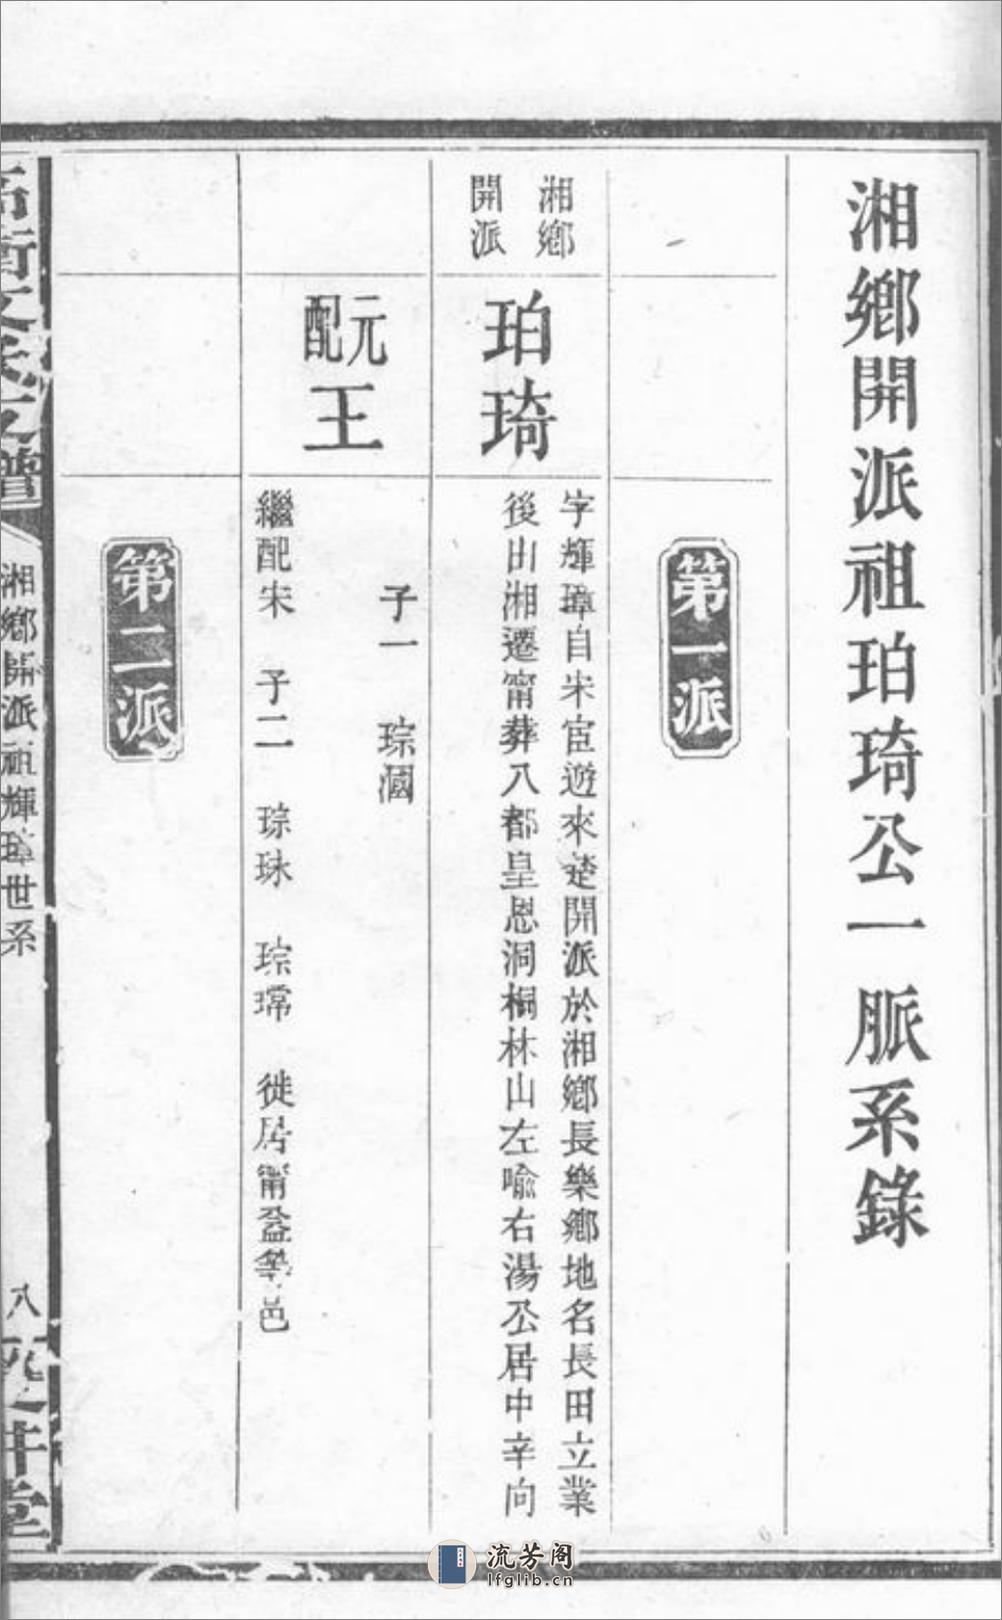 湘鄉開派祖珀琦公一脈系錄
第一派
湘鄉
開派
珀琦
字輝璋自宋宦遊來楚開派於湘鄉長樂鄉地名長田立業
後由湘遷甯葬八都皇恩洞桐林山左喻右湯公居中辛向
元配
王
子一 琮㴽
繼配宋 子二 琮珠 琮瑺 徙居甯益等邑
第二派
衡文氏支譜
湘鄉開派祖輝璋世系
八
井堂
流芳阁
lfglib.cn